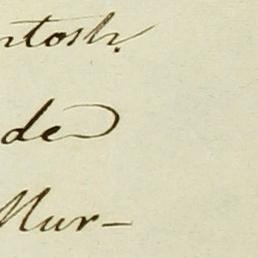 ntosh.
de
Mur-